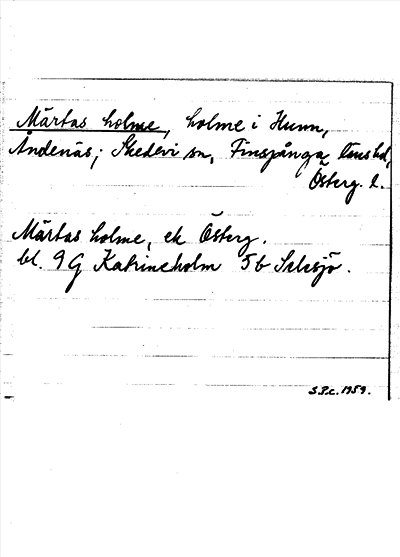 Märtas holme, holme i Hunn,
Ändenäs; Skedevi sn, Finspånga läns hd,
Österg. l.
Märtas holme, ek Österg.
bl. 9 G Katrineholm 5b
S.P.c. 1959.